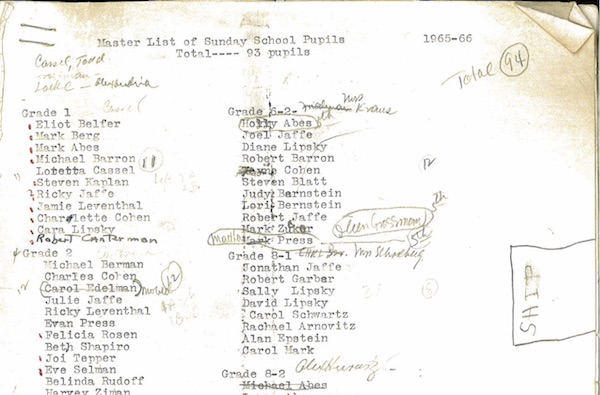 Master List of Sunday School Pupils 1965-66
Total---- 93 pupils
Cassel, Todd
Locke - Alexandria
Total 94
Cassel
Grade 1
Eliot Belfer
Mark Berg
Mark Abes
Michael Barron 11
Loretta Cassel
Steven Kaplan
Ricky Jaffe
Jamie Leventhal
Charolette Cohen
Cara Lipsky
Robert Canterman
Grade 2
Michael Berman
Charles Cohen 12
Carol Edelman moved
Julie Jaffe
Ricky Leventhal
Evan Press
Felicia Rosen
Beth Shapiro
Joi Tepper
Eve Selman
Belinda Rudoff
Harvey Ziman
Grade 6-2- Mrs Kraus
Holly Abes
Joel Jaffe
Diane Lipsky
Robert Barron
Cohen 12
Steven Blatt
Judy Bernstein
Lori Bernstein
Robert Jaffe
Mark Zuker
Mark Press 5th
Grade 8-1
Jonathan Jaffe
Robert Garber
Sally Lipsky
David Lipsky
Carol Schwartz
Rachael Arnovitz
Alan Epstein
Carol Mark
Grade 8-2
Michael Abes
SHIP